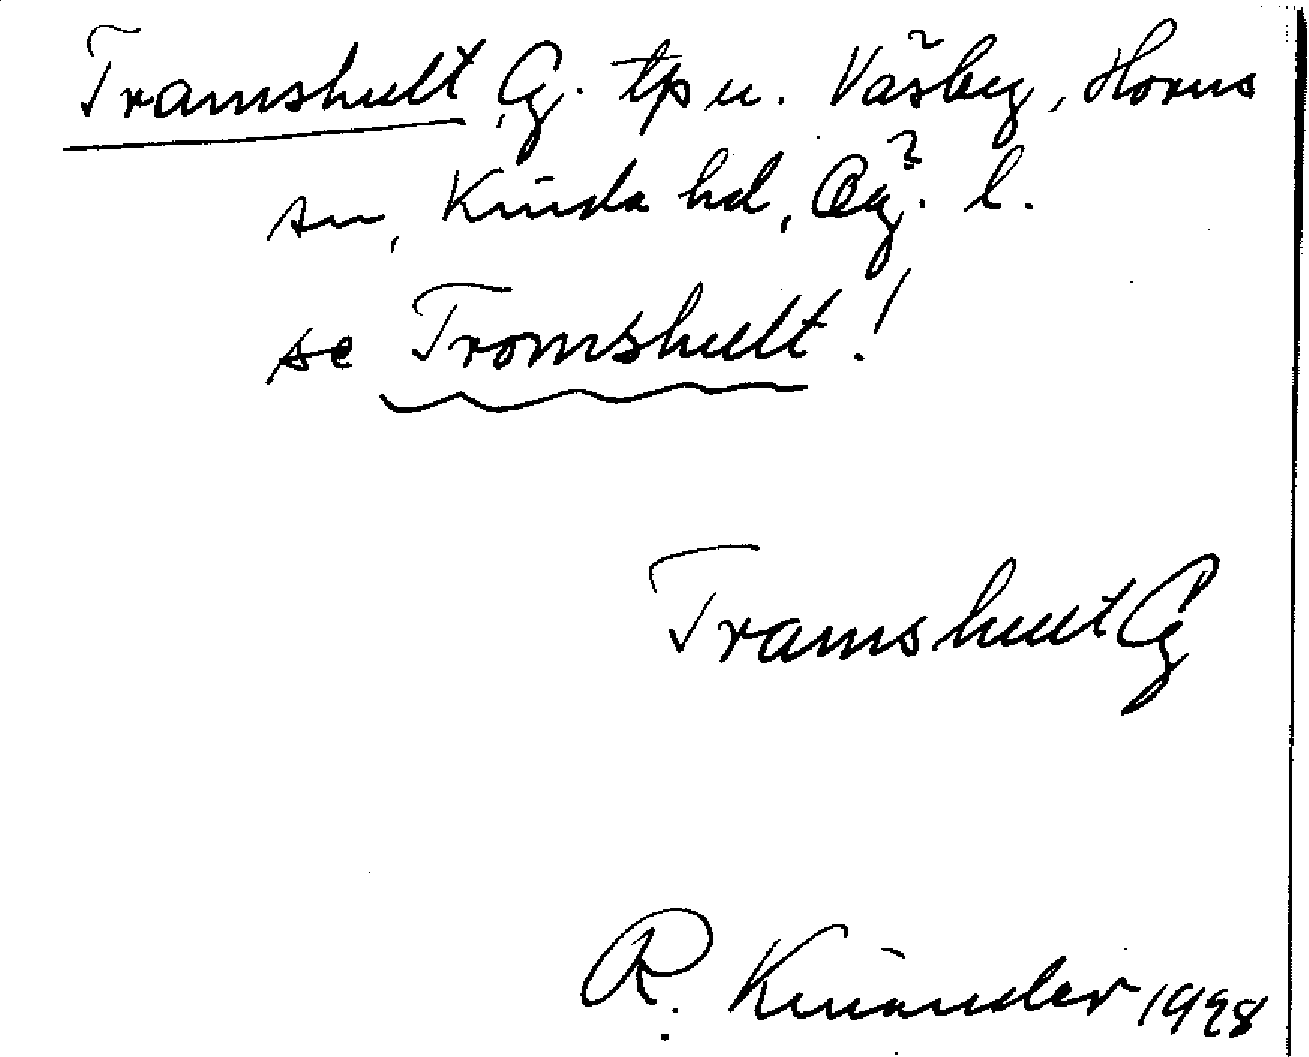 Tramshult, tp u. Väsby, Horns
sn, Kinda hd, Ög. l.
se Tromshult!
Tramshult
R. Kinander